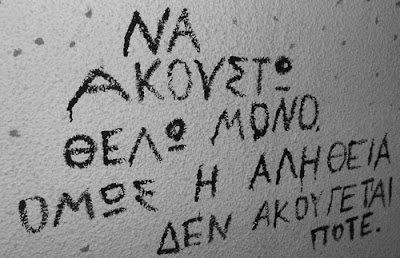 ΝΑ
ΑΚΟΥΣΤΩ
ΘΕΛΩ ΜΟΝΟ.
ΟΜΩΣ Η ΑΛΗΘΕΙΑ
ΔΕΝ ΑΚΟΥΓΕΤΑΙ
ΠΟΤΕ.